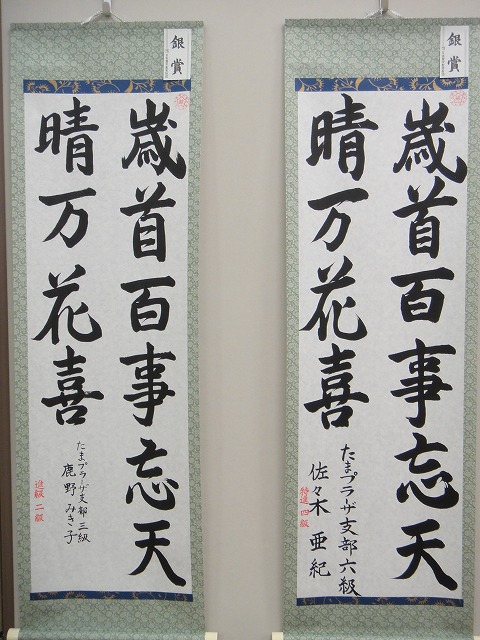 銀賞
歳首百事忘天
晴万花喜
たまプラザ支部六級
佐々木亜紀
特進 四級
銀賞
歳首百事忘天
晴万花喜
たまプラザ支部三級
鹿野みき子
進級 二級